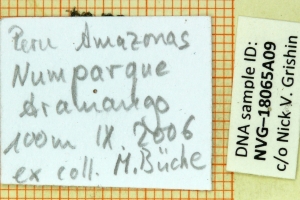 Peru Amazonas
Numparque
Aramango
100m IX. 2006
ex coll. M. Büche
DNA sample ID:
NVG-18065A09
c/o Nick V. Grishin